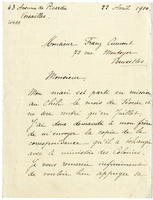 63 Avenue de Picardie 22 Avril 1910.
Versailles
Monsieur Franz Cumont
Bruxelles
Monsieur,
Mon mari est parti en mission
au Chili le mois de Février et
ne doit rentrer qu'en Juillet.
J'ai donc demandé à mon frère
de m'envoyer la copie de la
correspondance qu'il a échangée
avec le ministère des Colonies.
Je vous remercie infiniment
de vouloir bien appuyer sa